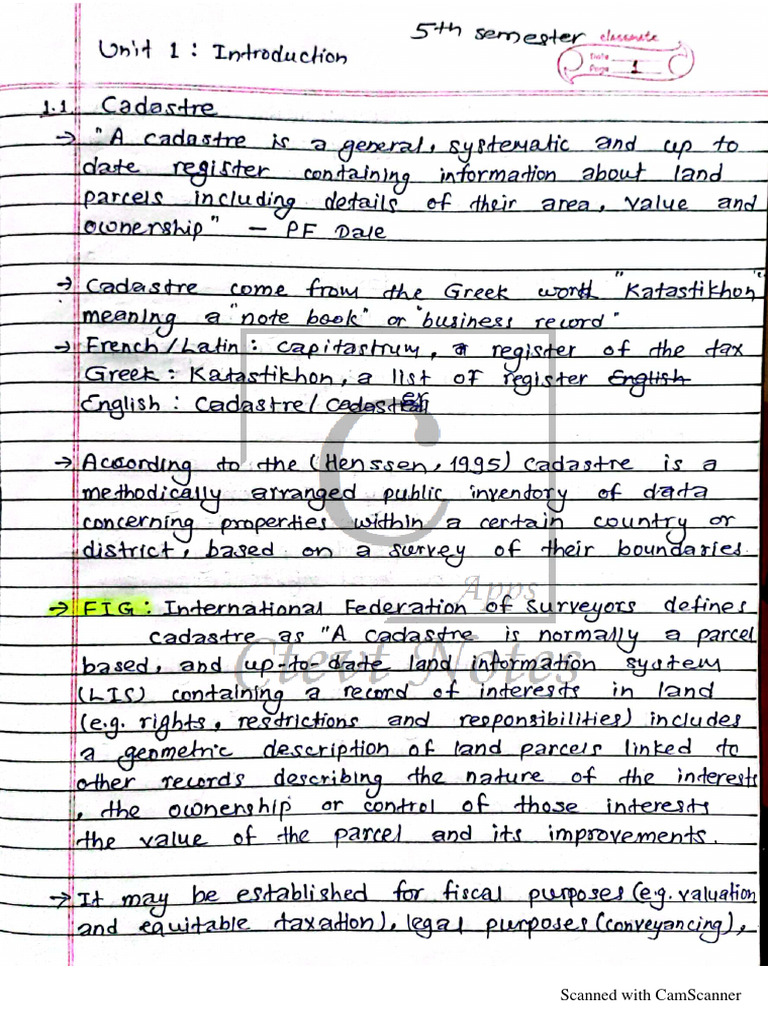 5th semester classmate
Unit 1 : Introduction
Date
Page 1
1.1 Cadastre
→ "A cadastre is a general, systematic and up to
date register containing information about land
parcels including details of their area, value and
ownership" – PF Dale
→ Cadastre come from the Greek word "Katastikhon"
meaning a "note book" or "business record"
→ French/Latin : capitastrum, a register of the tax
Greek : Katastikhon, a list of register English
English : Cadastre/
→ According to the (Henssen, 1995) Cadastre is a
methodically arranged public inventory of data
concerning properties within a certain country or
district, based on a survey of their boundaries.
→ FIG : International Federation of Surveyors defines
cadastre as "A cadastre is normally a parcel
based, and up-to-date land information system
(LIS) containing a record of interests in land
(e.g. rights, restrictions and responsibilities) includes
a geometric description of land parcels linked to
other records describing the nature of the interests
, the ownership or control of those interests
the value of the parcel and its improvements.
→ It may be established for fiscal purposes (e.g. valuation
and equitable taxation), legal purposes (conveyancing),
C
Apps
Ctevt Notes
Scanned with CamScanner